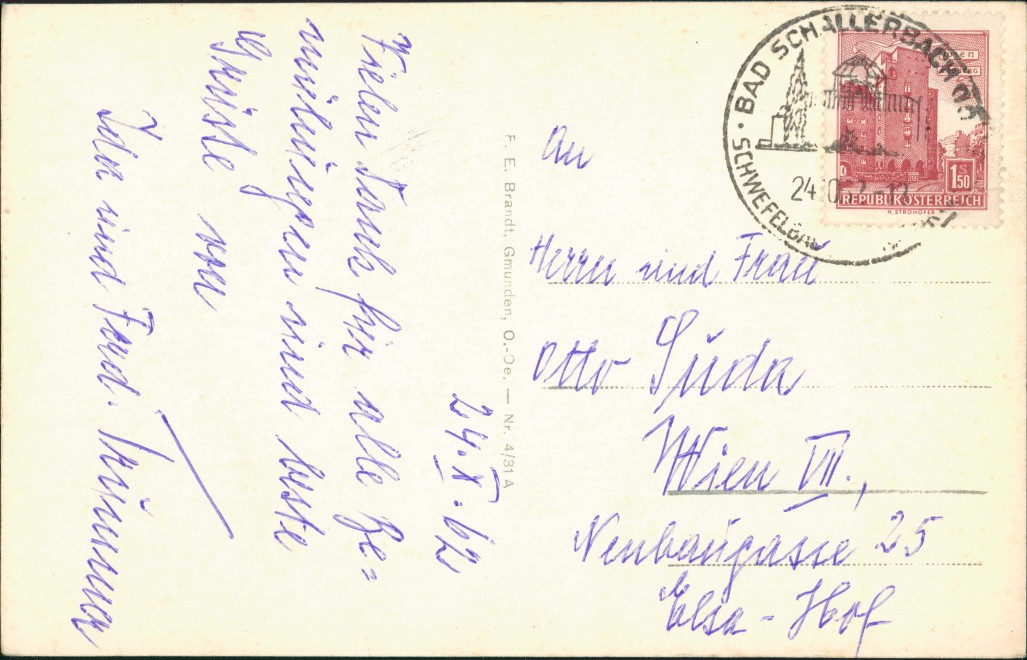 Vielen Dank für alle Be=
mühungen und beste
Grüße von
Ida und Ferd.
24.X.62
F. E. Brandt, Gmunden, O.-Oe. — Nr. 4/31 A
BAD SCHALLERBACH OÖ
SCHWEFELBAD
24
REPUBLIK ÖSTERREICH
1.50
H. STROHOFER
An
Herrn und Frau
Otto Suda
Wien VII.,
Neubaugasse 25
Elsa-Hof